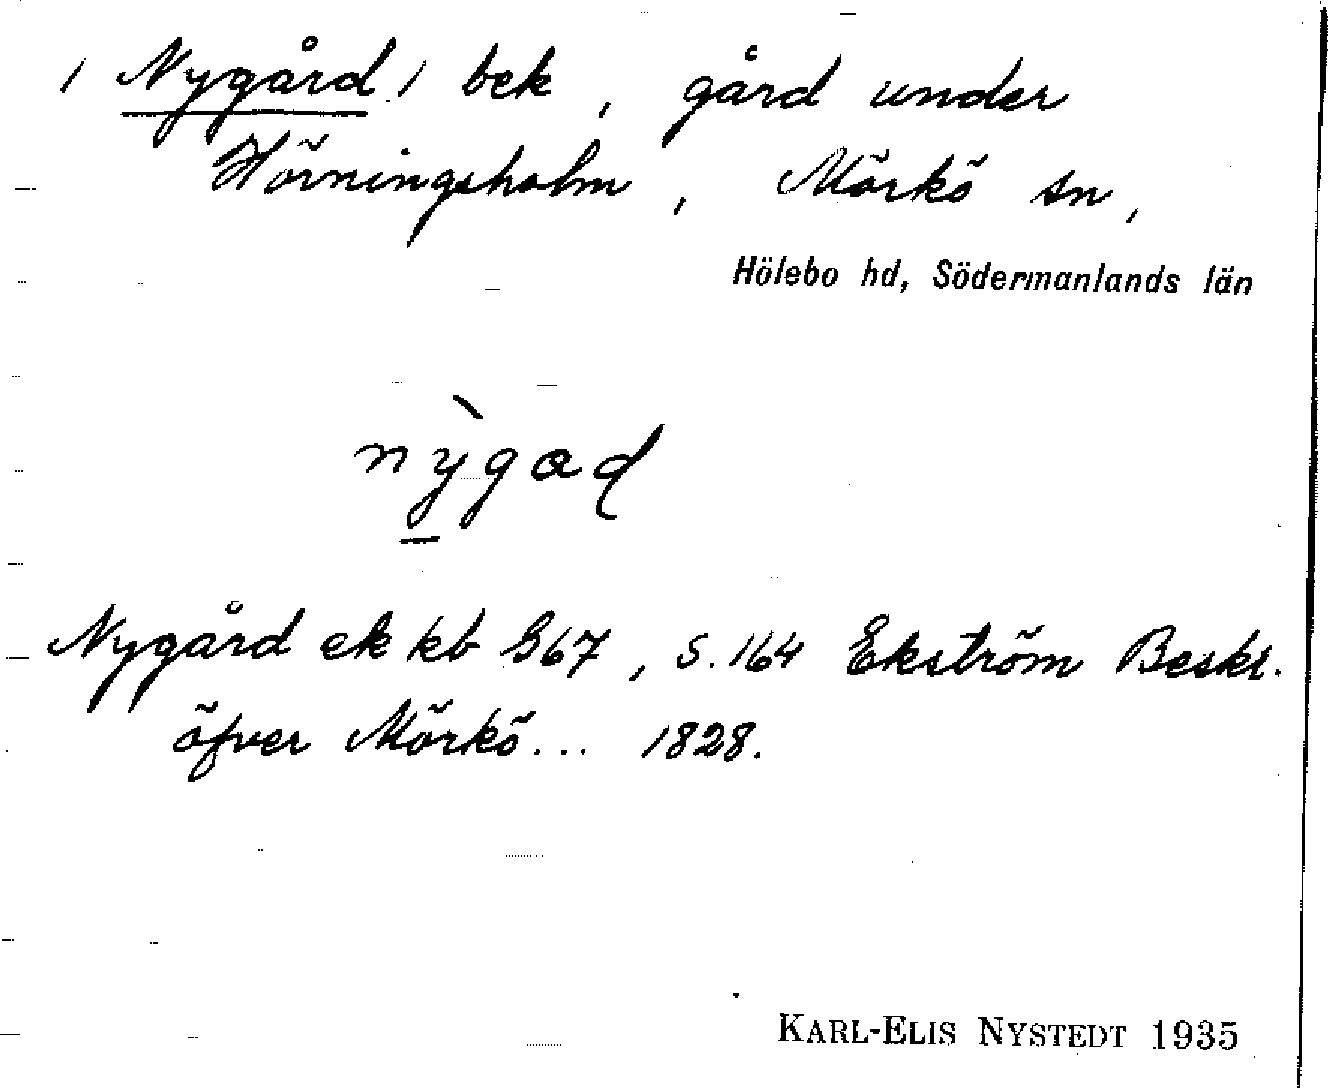 / Nygård / bek, gård under
Hörningsholm, Mörkö sn,
Hölebo hd, Södermanlands län
nỳgad
Nygård ek kb G67, s. 164 Ekström Beskr.
öfver Mörkö... 1828.
KARL-ELIS NYSTEDT 1935